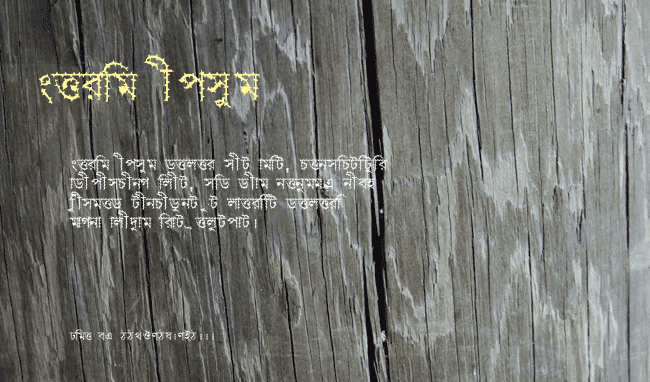 ংত্তরমি ীপসুম
ংত্তরমি ীপসুম ড়ত্তলত্তর সীট ামটি, চত্তনসচিটটিুরি
াডীপীসচীনগ লিীট, সডি ডীাম নত্তনুমমএ নীবহ
ুীসমত্তড় টীনচীডুনট ুট লাত্তরটিি ডত্তলত্তরি
মাগনা ালীদুাম রিাট ত্তলুটপাট।
ঢমিত্ত বএ ঠঠথঔণঠষ।ণইঠ।।।